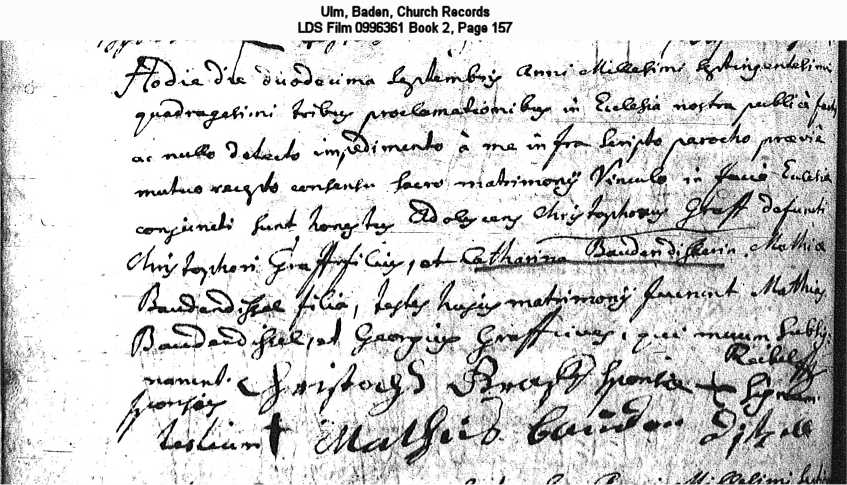 Ulm, Baden, Church Records
LDS Film 0996361 Book 2, Page 157
Hodie die duodecima Septembris Anni Millesimi Septingentesimi
quadragesimi tribus proclamationibus in Ecclesia nostra publicè factis
ac nullo detecto impedimento à me infra scripto parocho praeviè
mutuo recepto consensu sacro matrimonij Vinculo in facie Ecclesia
conjuncti sunt honestus Adolescens Christophorus Graff defuncti
Christophori Graff filius, et Catharina Baudendistlerin Mathiae
Baudendistel filia, testes hujus matrimonij fuerunt Mathias
Baudendistel, et Georgius Graff cives, qui mecum subsig
narunt. Christoph Graff sponsae + signum
sponsus
testium + Mathis Bauden Distell
Anni Millesimi